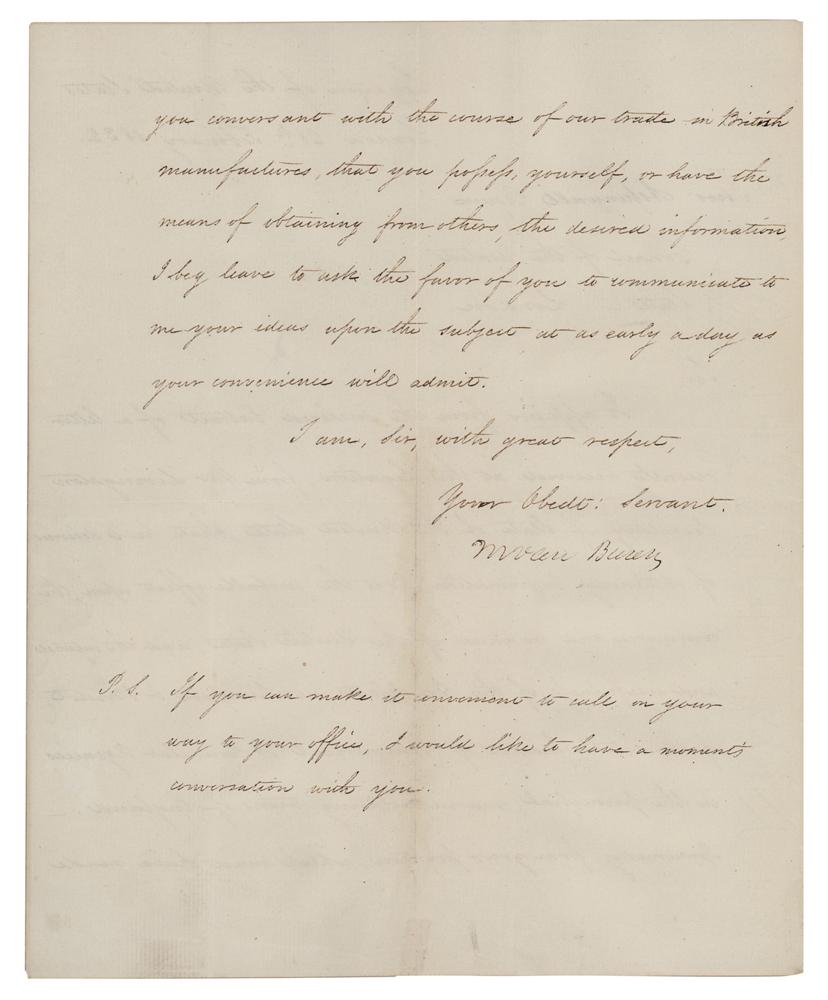 you conversant with the course of our trade in British
manufactures, that you possess, yourself, or have the
means of obtaining from others, the desired information,
I beg leave to ask the favor of you to communicate to
me your ideas upon the subject at as early a day as
your convenience will admit.
I am, Sir, with great respect,
Your Obedt: Servant.
M Van Buren
P. S. If you can make it convenient to call in your
way to your office, I would like to have a moment's
conversation with you.